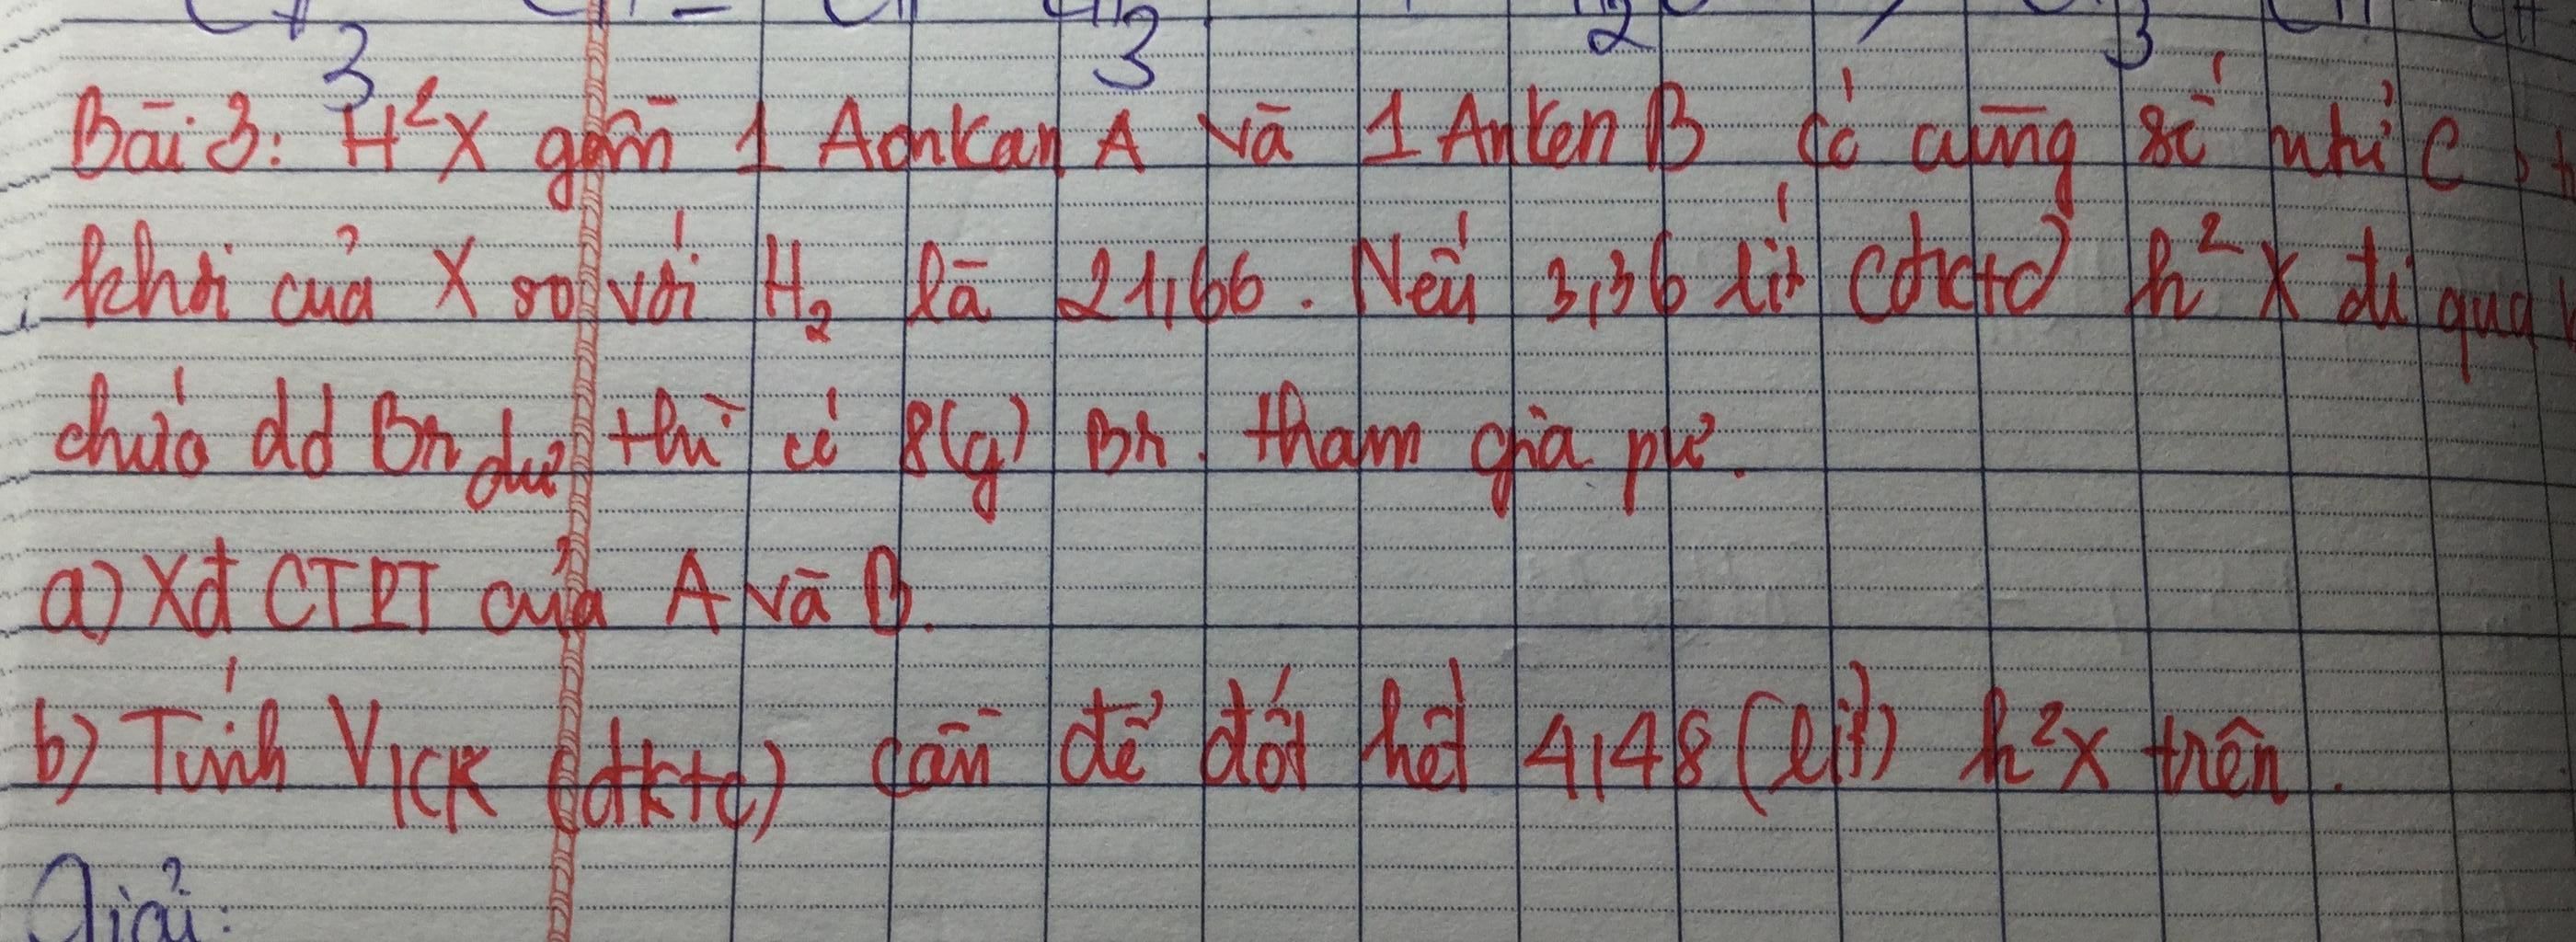 Bài 3: H²X gồm 1 Aonkan A và 1 Anken B có cùng số nhỉ C
khối của X so với H₂ là 21,66. Nếu 3,36 lít (đktc) h²X đi qua
chứa dd Br dư thì có 8(g) Br. tham gia pư.
a) Xđ CTPT của A và B.
b) Tính V KK (đktc) cần để đốt hết 4,48 (lít) h²X trên.
Giải: